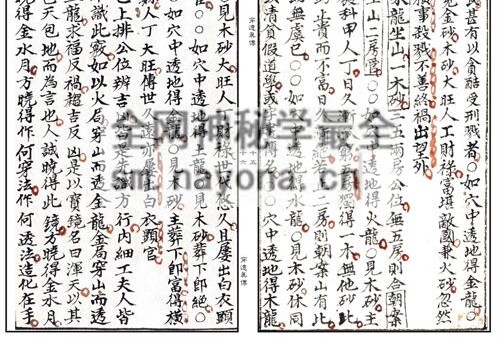 民甚有以貪酷受刑戮者○如穴中透地得金龍○
見金砂木砂大旺人丁財祿富堪敵國兼火砂忽然
事殺戮不善終禍出望外
木龍坐山一木砂二五兩房公位無五房則合朝案
主山二房 ○○如穴中透地得火龍○見木砂主
發科甲人丁日久漸 得一木無他砂此
主貴而不富日久 二房則朝案山有此
無虞已○○如穴中透地得水龍○見木砂休同
清貧假道學或 ○穴中透地得木龍
穿透真傳
穿透真傳
見木砂大旺人丁財祿世代悠久且屢出白衣顯
○○如穴中透地得土龍○見木砂葬下即絕○
○如穴中透地得金龍○見木砂主葬下即富得橫
人丁大旺傳世久遠亦屢出白衣顯官
已上排公位辨吉凶皆是先 方行內細工夫人皆
識此竅如以火局穿山而透金龍金局穿山而透
土龍求福反禍趨吉反凶是以寶鏡名曰渾天以其
天包地而為言也人誠曉得此鏡方曉得金水月
曉得金水月方曉得作何穿法作何透法造化在手
全网神秘学最全
sm.nayona.cn